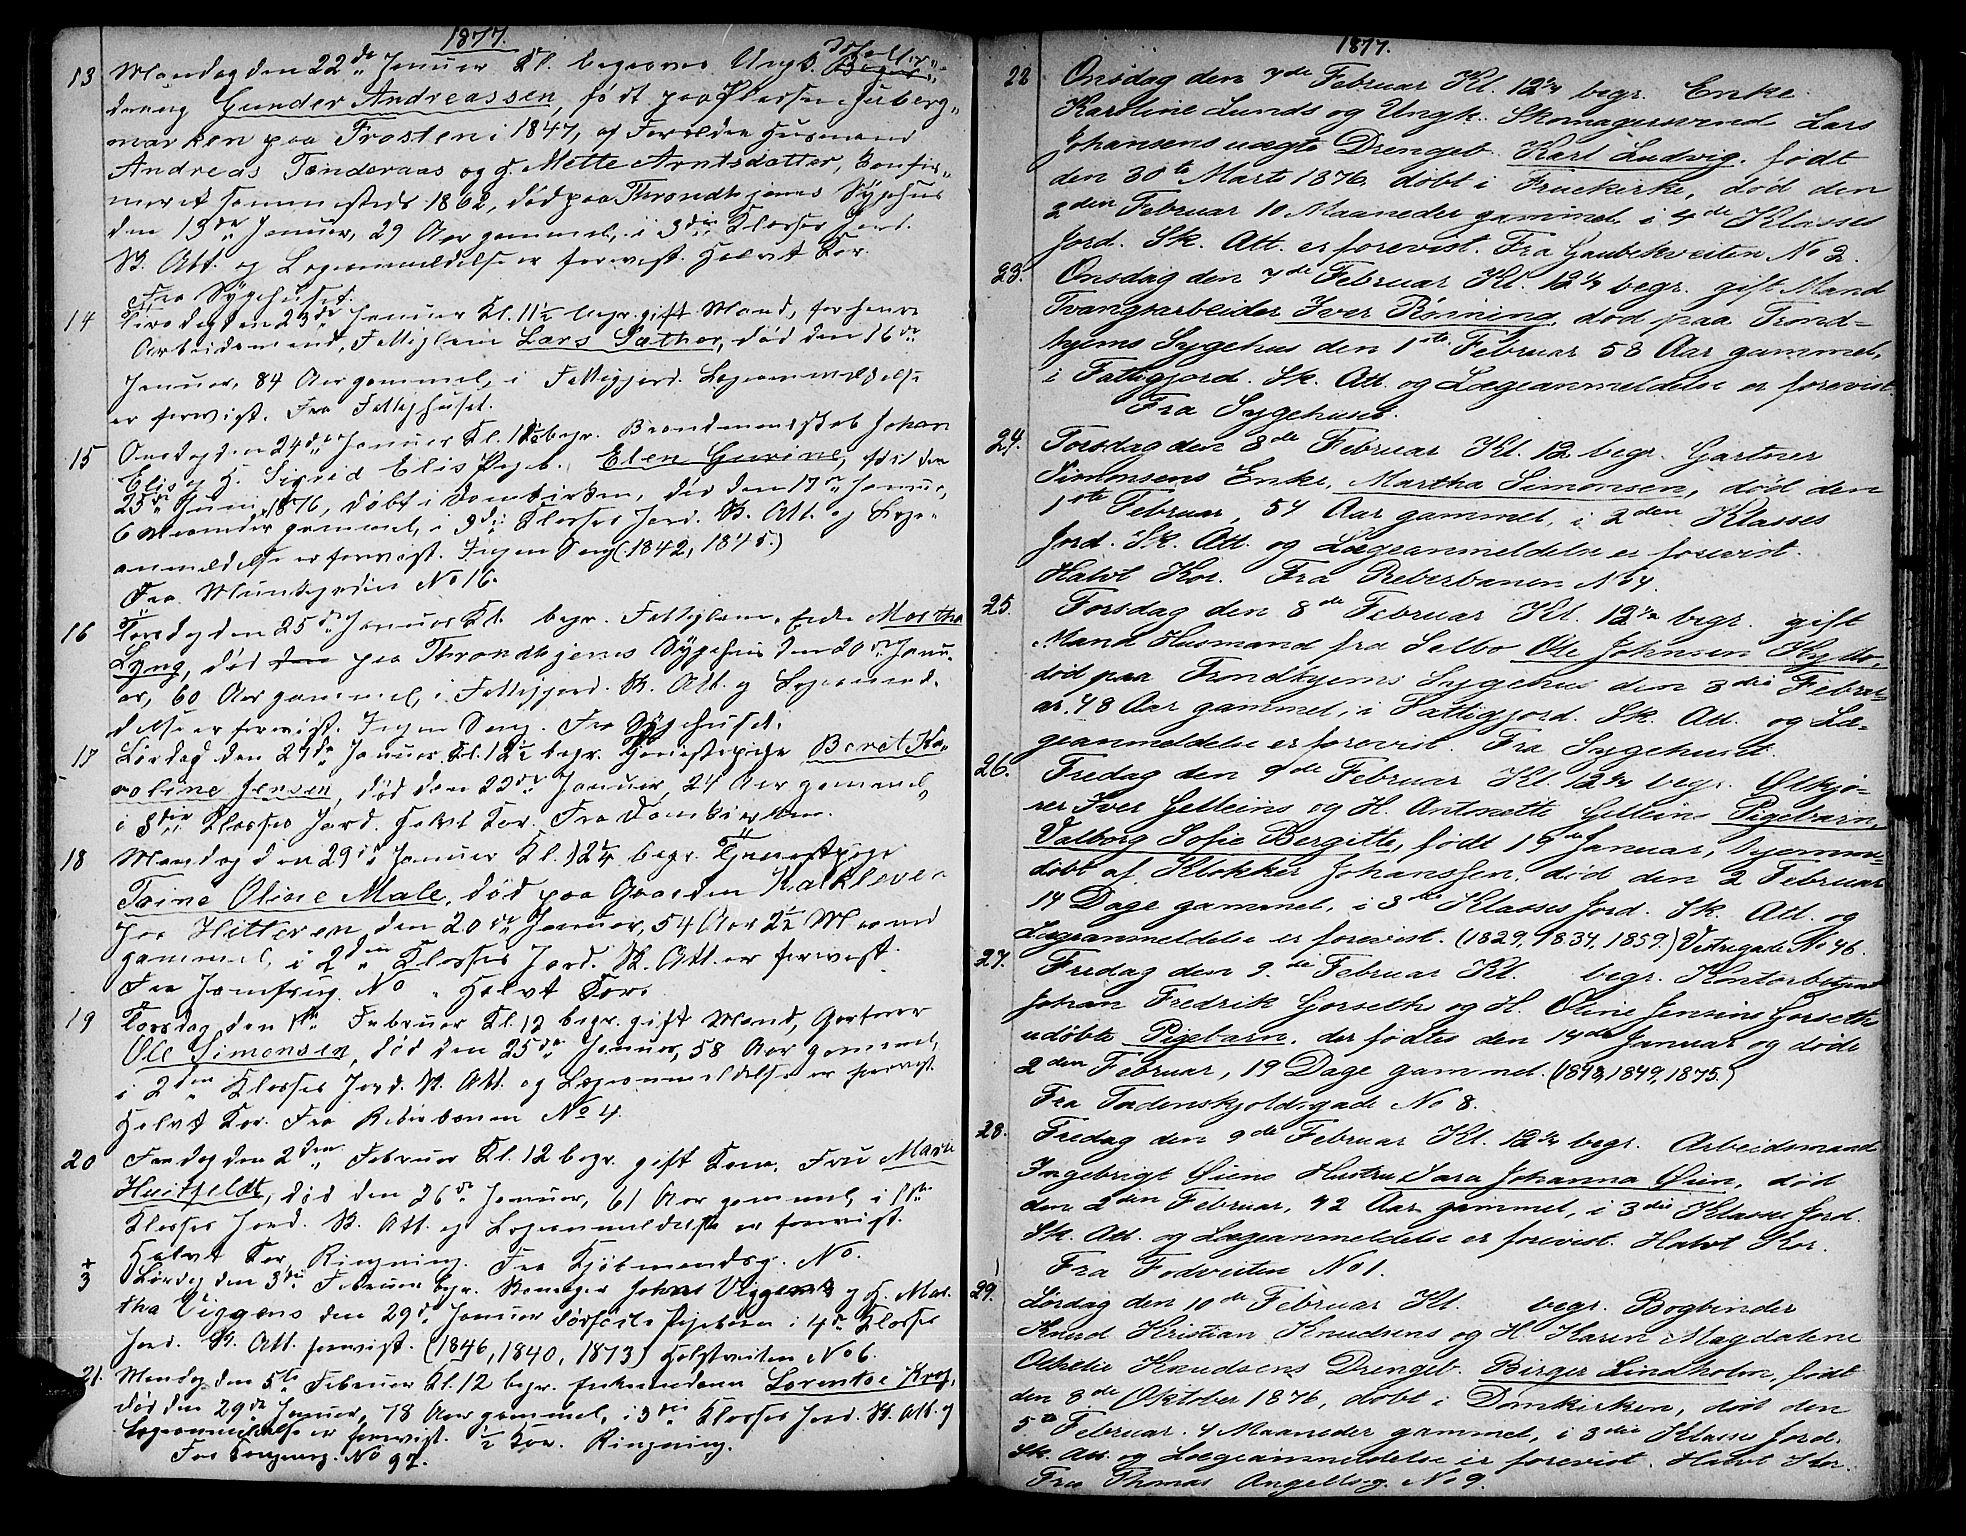 1877.
13 Mandag den 22de Januar Kl. begraves Ungk.
dreng Gunder Andreassen, født paa Pladsen
marken paa Frosten i 1847, af Forældre Husmand
Andreas Tønderaas og H. Mette Arntsdatter, Konfir-
meret sammesteds 1862, død paa Throndhjems Sygehus
den 13de Januar, 29 Aar gammel, i 3die Klasses Jord.
Sk. Att. og Lægeanmeldelse er forevist. Halvt Kor.
Fra Sygehuset.
14 Tirsdag den 23de Januar Kl. 11½ begr. gift Mand, forhenv.
Arbeidsmand, Fattiglem Lars Sæther, død den 16de
Januar, 84 Aar gammel, i Fattigjord. Lægeanmeldelse
er forevist. Fra Fattighuset.
15 Onsdag den 24de Januar Kl. 12½ begr. Johan
Elis og H. Sigrid Elis Pigeb. Elen Gurine, født den
25de Juni 1876, døbt i Domkirken, død den 17de Januar,
6 Maaneder gammel, i 3die Klasses Jord. Sk. Att. og Læge-
anmeldelse er forevist. Ingen Sang. (1842, 1845.)
Fra Munkegaden No 16.
16 Torsdag den 25de Januar Kl. begr. Fattiglem, Enke Martha
Lyng, død den paa Throndhjems Sygehus den 20de Janu-
ar, 60 Aar gammel, i Fattigjord. Sk. Att. og Lægeanmel-
delse er forevist. Ingen Sang. Fra Sygehuset.
17 Lørdag den 27de Januar Kl. 12½ begr. Tjenestepige Beret Ka-
roline Jensen, død den 23de Januar, 24 Aar gammel,
i 3die Klasses Jord. Halvt Kor. Fra Domkirken.
18 Mandag den 29de Januar Kl. 12¼ begr. Tjenestepige
Trine Oline Male, død paa Gaarden Kalkleven
paa Hitteren, den 20de Januar, 54 Aar 2½ Maaned
gammel, i 2den Klasses Jord. Sk. Att. er forevist.
Fra Jomfrug. No . Halvt Kor.
19 Torsdag den 1ste Februar Kl. 12 begr. gift Mand, Gartner
Ole Simonsen, død den 25de Januar, 58 Aar gammel,
i 2den Klasses Jord. Sk. Att. og Lægeanmeldelse er forevist.
Halvt Kor. Fra Reberbanen No 4.
20 Fredag den 2den Februar Kl. 12 begr. gift Kone, Fru Marie
Huitfeldt, død den 26de Januar, 61 Aar gammel, i 1ste
Klasses Jord. Sk. Att. og Lægeanmeldelse er forevist.
Halvt Kor, Ringning. Fra Kjøbmandsg. No.
+3 Lørdag den 3die Februar begr. Skomager Johns Viggens og H. Mar-
tha Viggens den 29de Januar dødfødte Pigebarn i 4de Klasses
Jord. Sk. Att. forevist. (1846, 1840, 1873) Holstveiten No 6.
21. Mandag den 5te Februar Kl. 12 begr. Enkemadam Lorentse Krog,
død den 29de Januar, 78 Aar gammel, i 3die Klasses Jord. Sk. Att. og
Lægeanmeldelse er forevist. ½ Kor. Ringning.
Fra Kongensg. No 97.
1877.
22 Onsdag den 7de Februar Kl. 12¼ begr. Enke
Karoline Lunds og Ungk. Skomagersvend Lars
Johansens uægte Drengeb. Karl Ludvig, født
den 30te Marts 1876, døbt i Fruekirke, død den
2den Februar 10 Maaneder gammel i 4de Klasses
Jord. Sk. Att. er forevist. Fra Gaubekveiten No 2.
23. Onsdag den 7de Februar Kl. 12½ begr. gift Mand
Tvangsarbeider Iver Rønning, død paa Trond-
hjems Sygehus den 1ste Februar 58 Aar gammel,
i Fattigjord. Sk. Att. og Lægeanmeldelse er forevist.
Fra Sygehuset.
24. Torsdag den 8de Februar Kl. 12 begr. Gartner
Simonsens Enke, Martha Simonsen, død den
1ste Februar, 54 Aar gammel, i 2den Klasses
Jord. Sk. Att. og Lægeanmeldelse er forevist.
Halvt Kor. Fra Reberbanen No 4.
25. Torsdag den 8de Februar Kl. 12½ begr. gift
Mand Husmand fra Selbo Ole Johnsen Hyttø,
død paa Trondhjems Sygehus den 3die Febru-
ar, 48 Aar gammel, i Fattigjord. Sk. Att. og Læ-
geanmeldelse er forevist. Fra Sygehuset.
26. Fredag den 9de Februar Kl. 12¼ begr. Ølkjø-
rer Iver Gelleins og H. Antonette Gelleins Pigebarn,
Valborg Sofie Bergitte, født 19de Januar, hjemme-
døbt af Klokker Johanssen, død den 2 Februar
14 Dage gammel, i 3die Klasses Jord. Sk. Att. og
Lægeanmeldelse er forevist. (1829, 1834, 1859.) Vestregade No 46.
27. Fredag den 9de Februar Kl. begr. Kontorbetjent
Johan Fredrik Gorseth og H. Oline Jensine Gorseths
udøbte Pigebarn, der fødtes den 14de Januar og døde
2den Februar, 19 Dage gammel. (1848, 1849, 1875.)
Fra Tordenskjoldsgade No 8.
28. Fredag den 9de Februar Kl. 12¼ begr. Arbeidsmand
Ingebrigt Øiens Hustru Sara Johanna Øien, død
den 2den Februar, 42 Aar gammel, i 3die Klasses Jord.
Sk. Att. og Lægeanmeldelse er forevist. Halvt Kor.
Fra Fodveiten No 1.
29. Lørdag den 10de Februar Kl. begr. Bogbinder
Knud Kristian Knudsens og H. Karen Magdalene
Othelie Knudsens Drengeb. Birger Lindholm, født
den 8de Oktober 1876, døbt i Domkirken, død den
5te Februar. 4 Maaneder gammel, i 3die Klasses Jord.
Sk. Att. og Lægeanmeldelse er forevist. Halvt Kor.
Fra Thomas Angellsg. No 9.